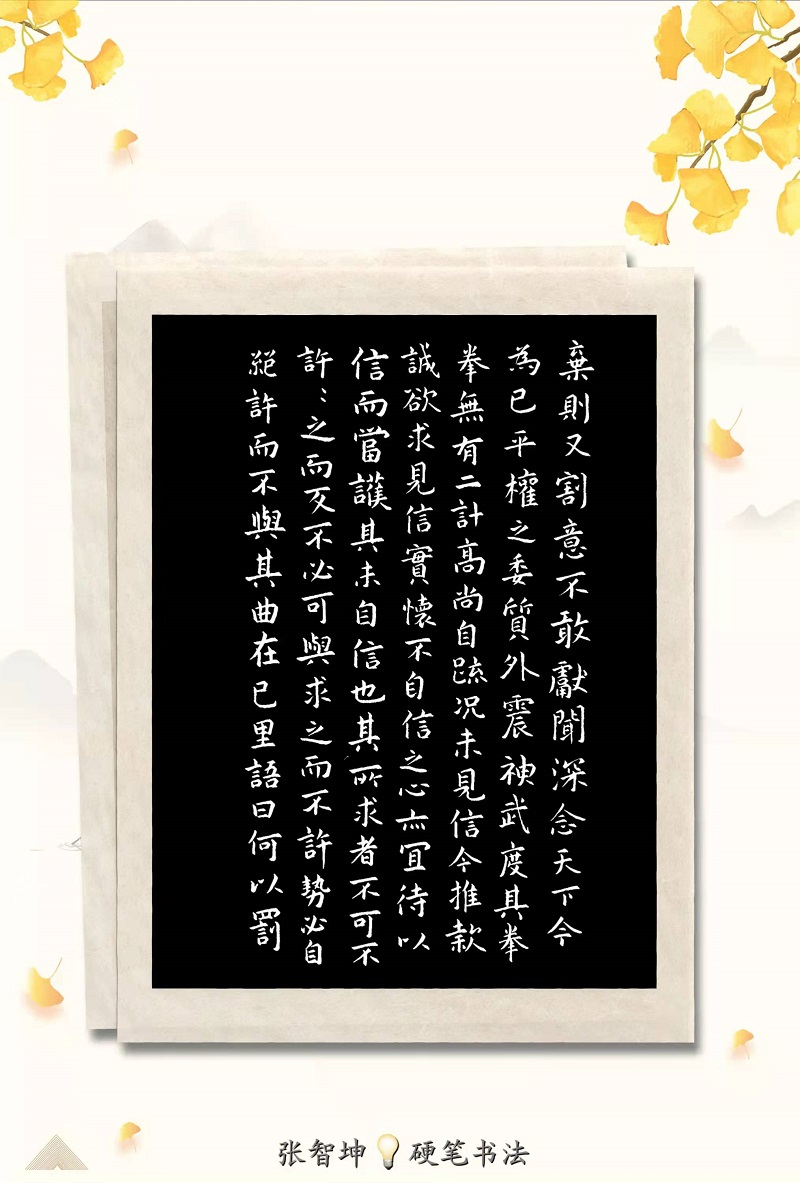 棄則又割意不敢獻聞深念天下今
為已平權之委質外震神武度其拳
拳無有二計高尚自疏況未見信今推款
誠欲求見信實懷不自信之心亦宜待以
信而當護其未自信也其所求者不可不
許〻之而反不必可與求之而不許勢必自
絕許而不與其曲在已里語曰何以罰
张智坤 硬笔书法